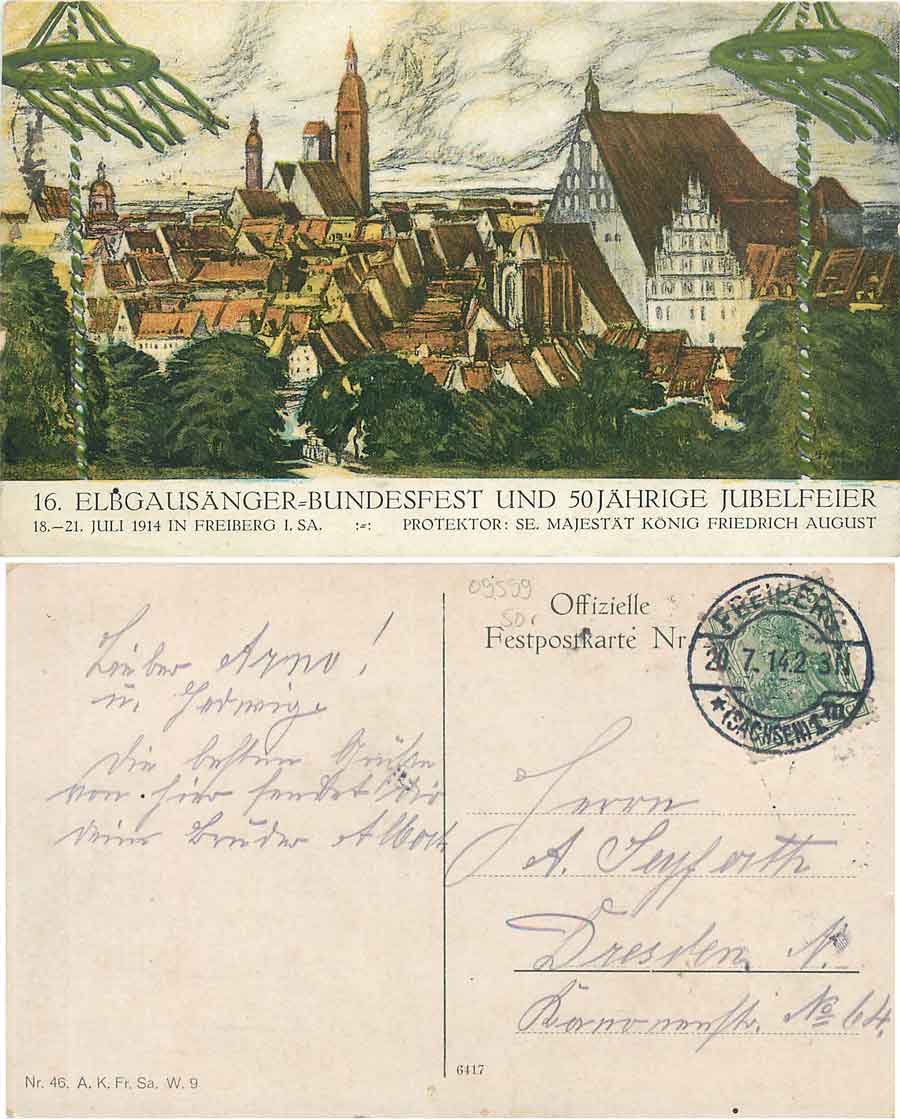 16. ELBGAUSÄNGER=BUNDESFEST UND 50JÄHRIGE JUBELFEIER
18.—21. JULI 1914 IN FREIBERG I. SA. :=: PROTEKTOR: SE. MAJESTÄT KÖNIG FRIEDRICH AUGUST
09599
50.
Offizielle
Festpostkarte Nr.
FREIBERG
20.7.14.2-3N
*(SACHSEN)1
Lieber Arno!
u. Hedwig.
Die besten Grüße
von hier sendet Dir
dein Bruder Albert
Herrn
A. Seyfarth
Dresden N.
Kanonenstr. No 64.
Nr. 46. A. K. Fr. Sa. W. 9
6417